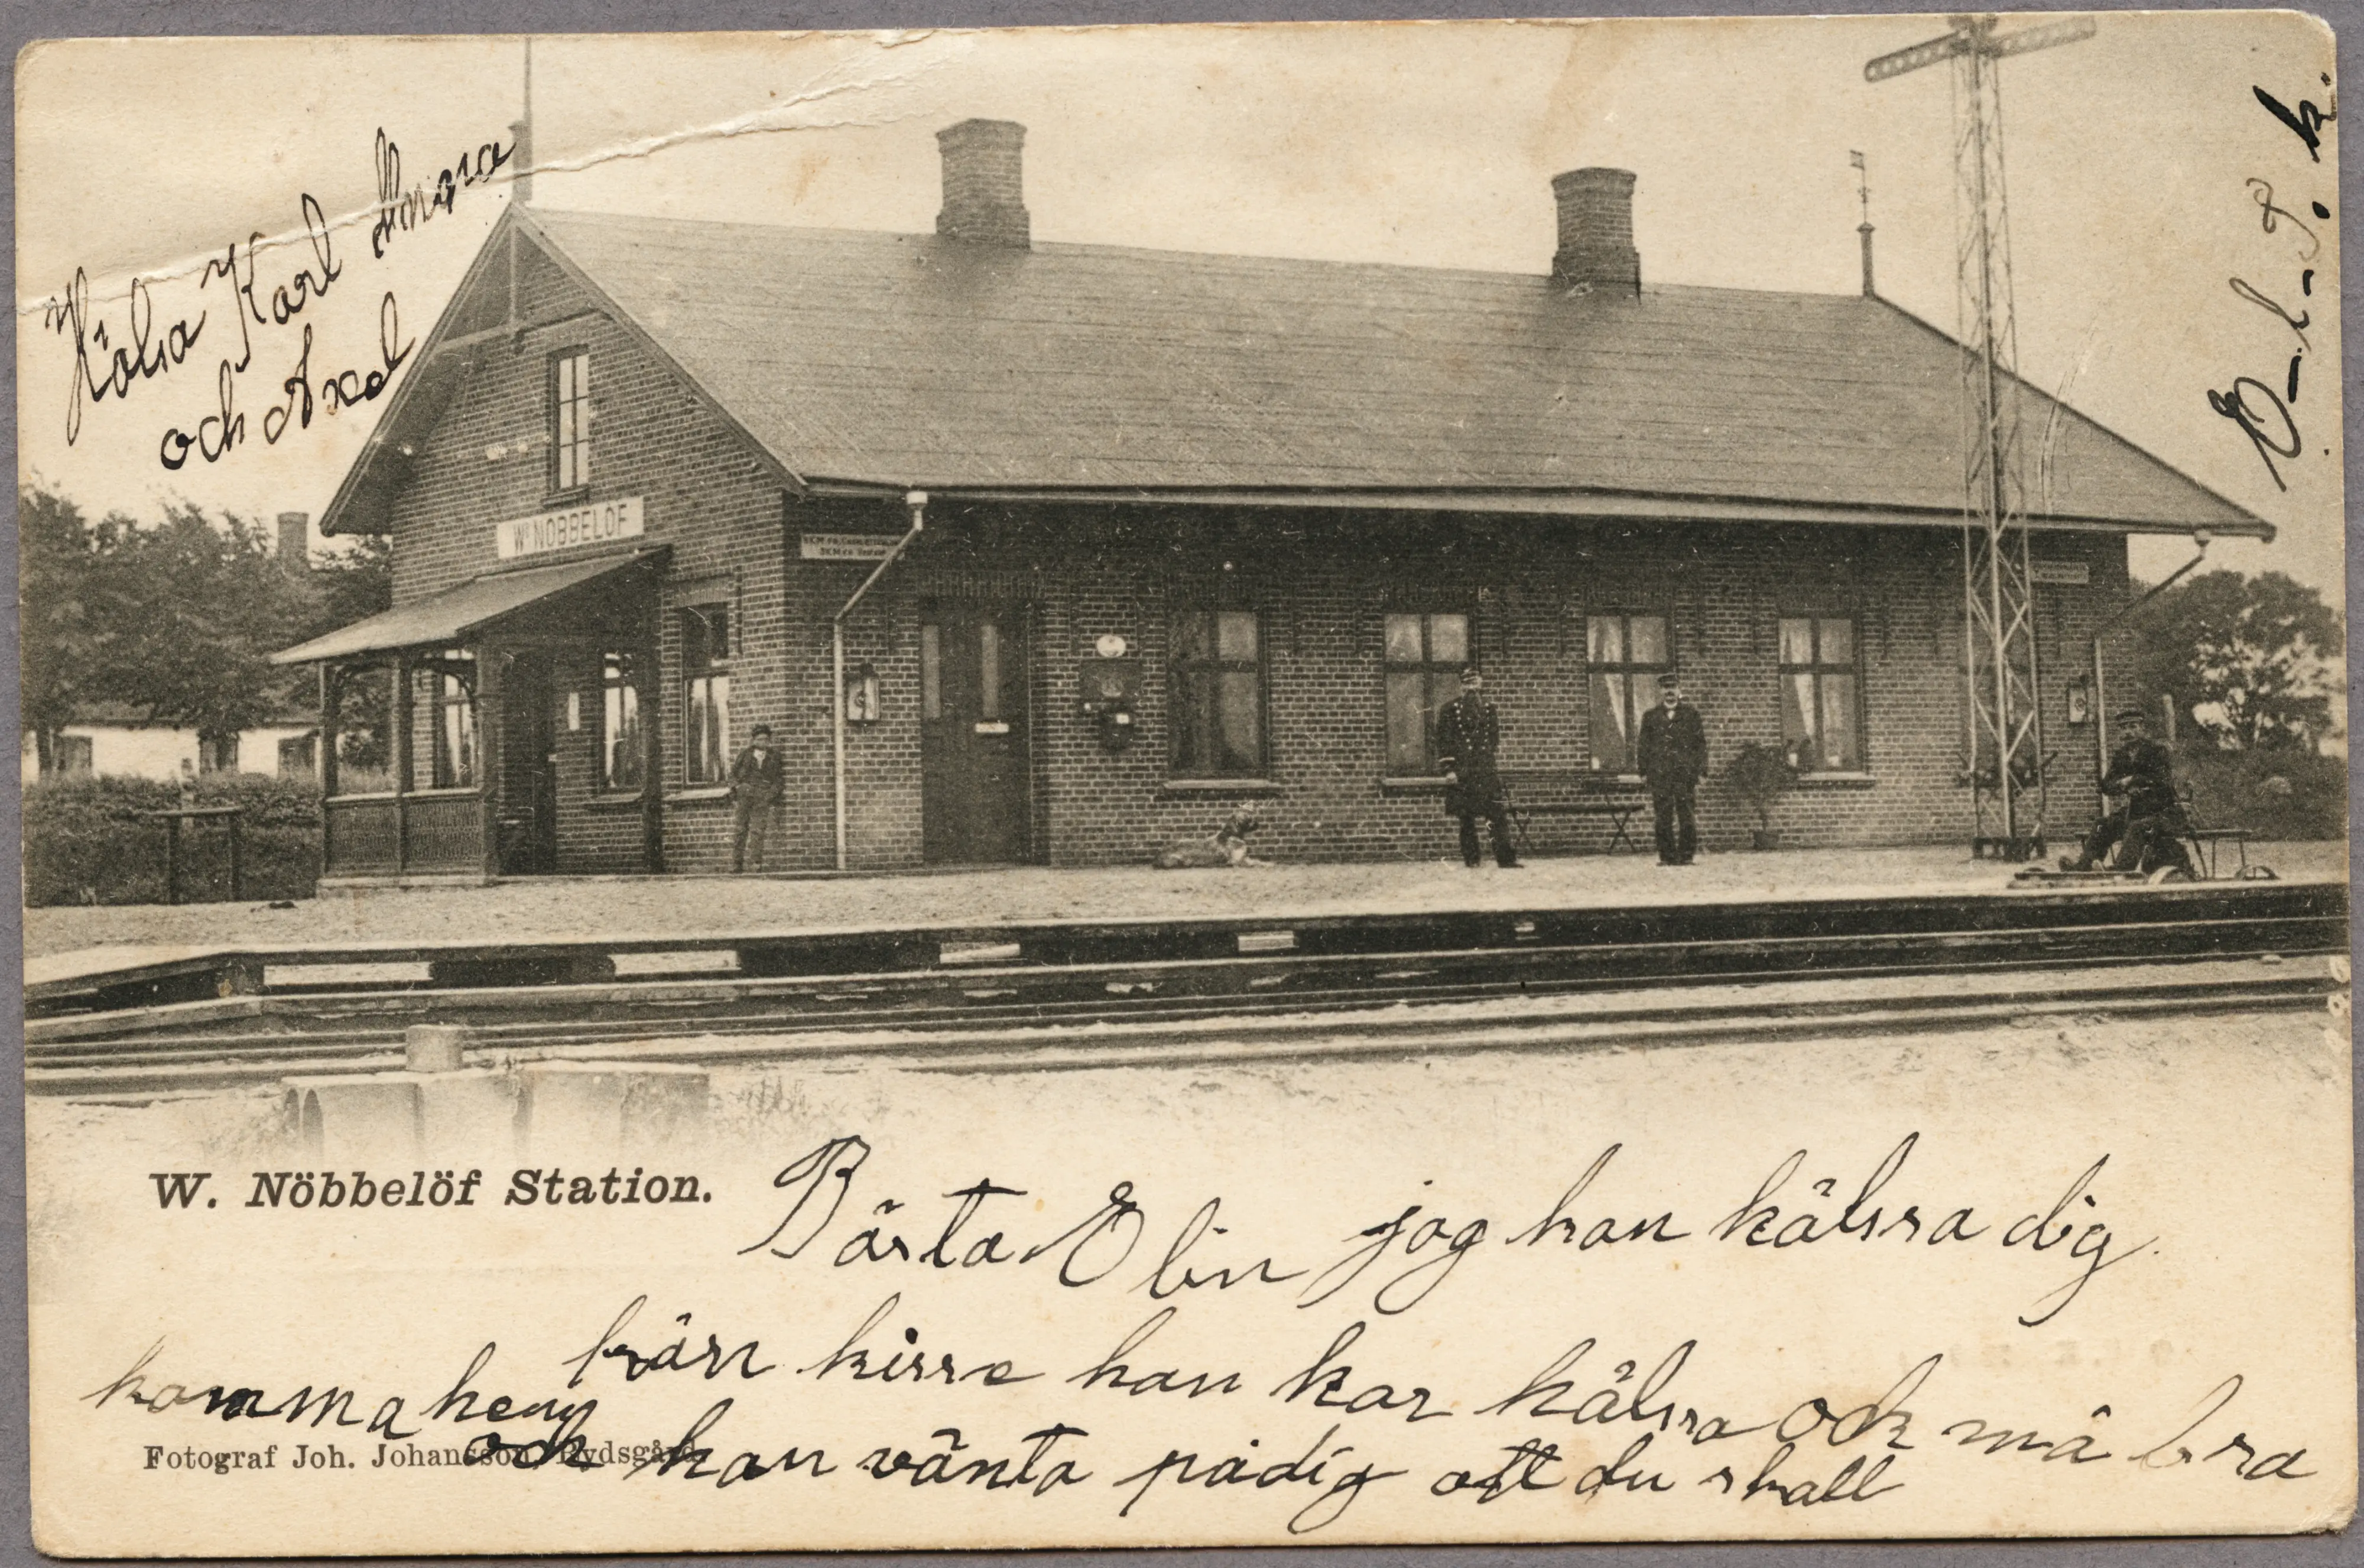 Hälsa Karl Anna
och Axel
Wa NÖBBELÖF
W. Nöbbelöf Station.
Bästa Elin jag kan hälssa dig
från kisse han har hälssa och må bra
och han vänta på dig att du skall
komma hem
Fotograf Joh. Johansson, Rydsgård.